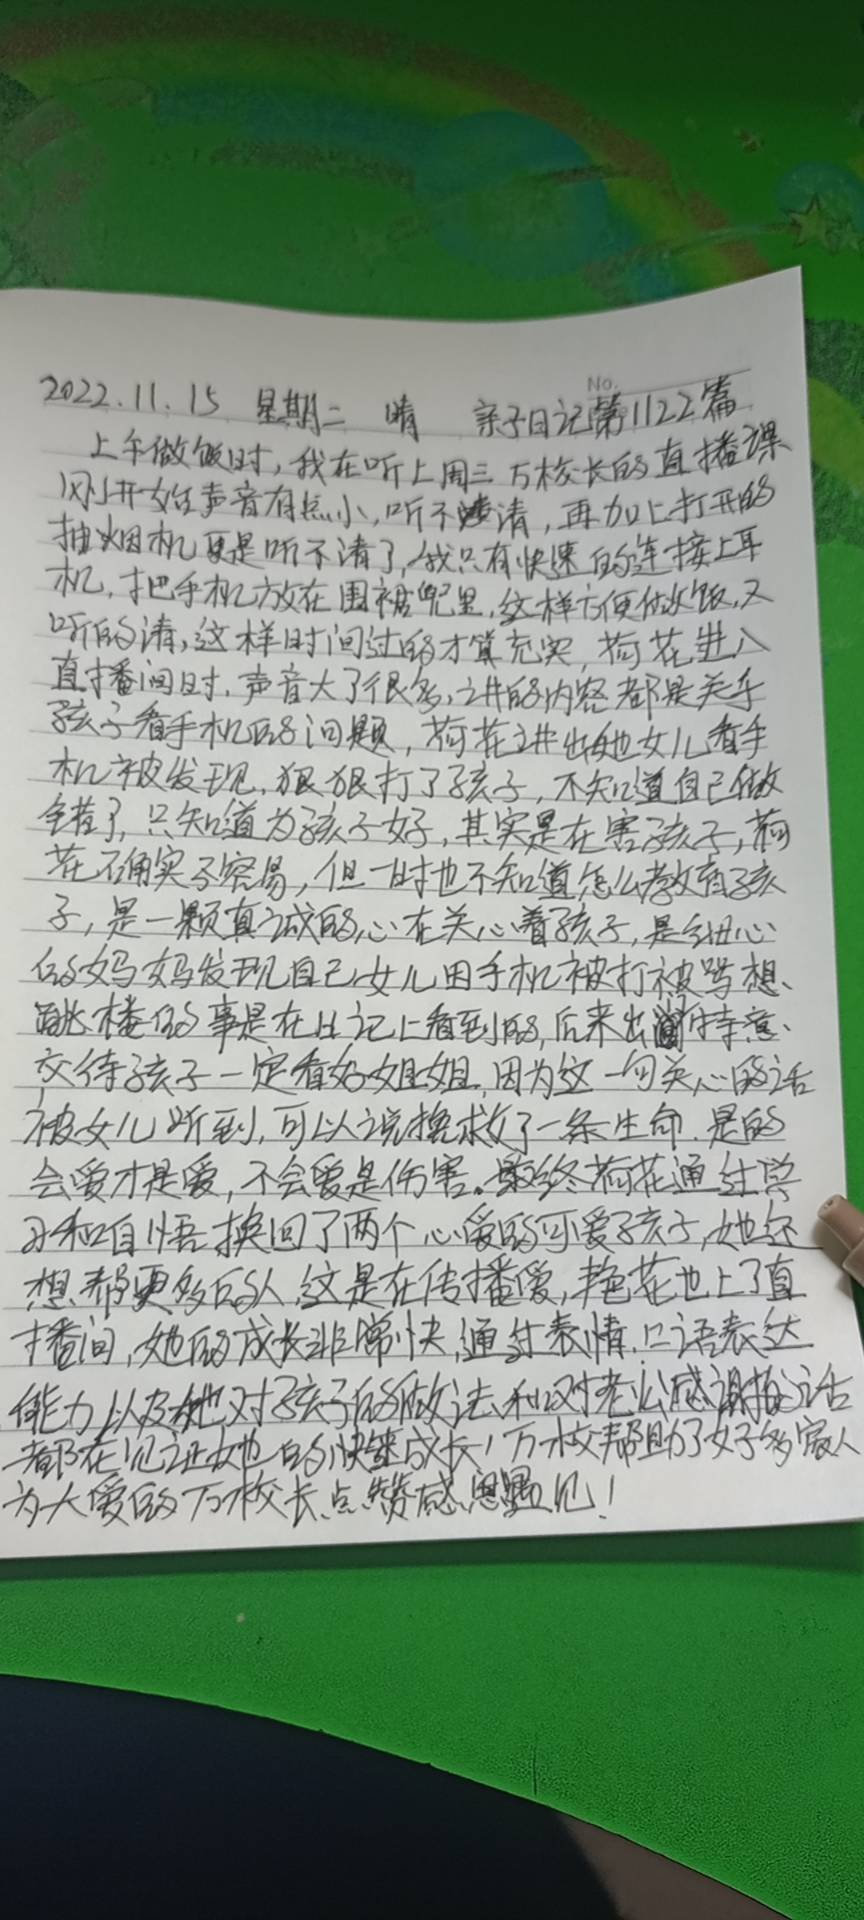 No.
2022.11.15 星期二 晴 亲子日记第1122篇
上午做饭时,我在听上周三万校长的直播课
刚开始声音有点小,听不清,再加上打开的
抽烟机更是听不清了,我只有快速的连接上耳
机,把手机放在围裙兜里,这样方便做饭,又
听的清,这样时间过的才算充实,荷花进入
直播间时,声音大了很多,讲的内容都是关乎
孩子看手机的问题,荷花讲出她女儿看手
机被发现,狠狠打了孩子,不知道自己做
错了,只知道为孩子好,其实是在害孩子,荷
花确实不容易,但一时也不知道怎么教育孩
子,是一颗真诚的心在关心着孩子,是细心
的妈妈发现自己女儿因手机被打被骂想、
跳楼的事是在日记上看到的,后来出门特意、
交待孩子一定看好姐姐,因为这一句关心的话
被女儿听到,可以说挽救了一条生命.是的
会爱才是爱,不会爱是伤害。最终荷花通过学
习和自悟换回了两个心爱的可爱孩子,她还
想帮更多的人,这是在传播爱,艳花也上了直
播间,她的成长非常快,通过表情.口语表达
能力以及她对孩子的做法和对老公感谢的话
都在见证她的快速成长!万校帮助了好多家人
为大爱的万校长点赞感恩遇见!